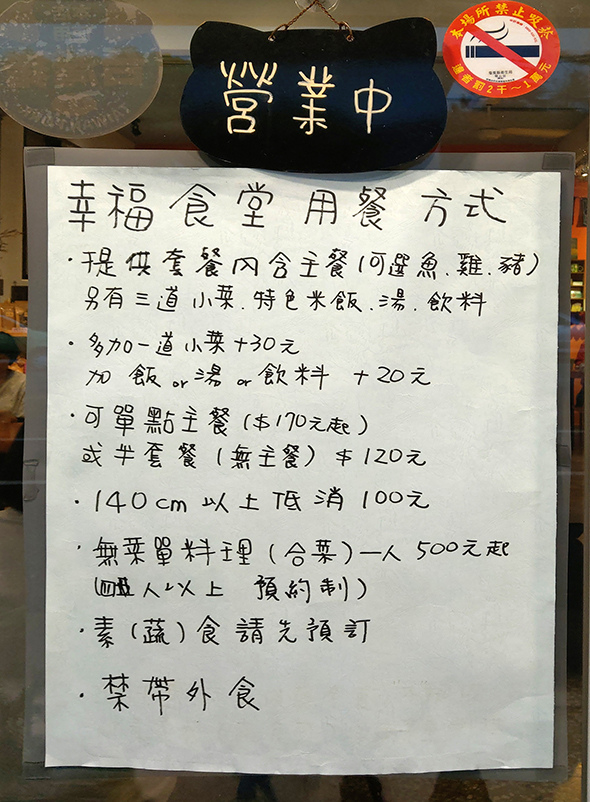 營業中
本場所禁止吸菸
違者罰2千~1萬元
幸福食堂用餐方式
·提供套餐內含主餐(可選魚、雞、豬)
另有三道小菜、特色米飯、湯、飲料
·多加一道小菜+30元
加飯or湯or飲料 +20元
·可單點主餐($170元起)
或半套餐(無主餐)$120元
·140cm以上低消100元
·無菜單料理(合菜)一人500元起
(人以上 預約制)
·素(蔬)食請先預訂
·禁帶外食